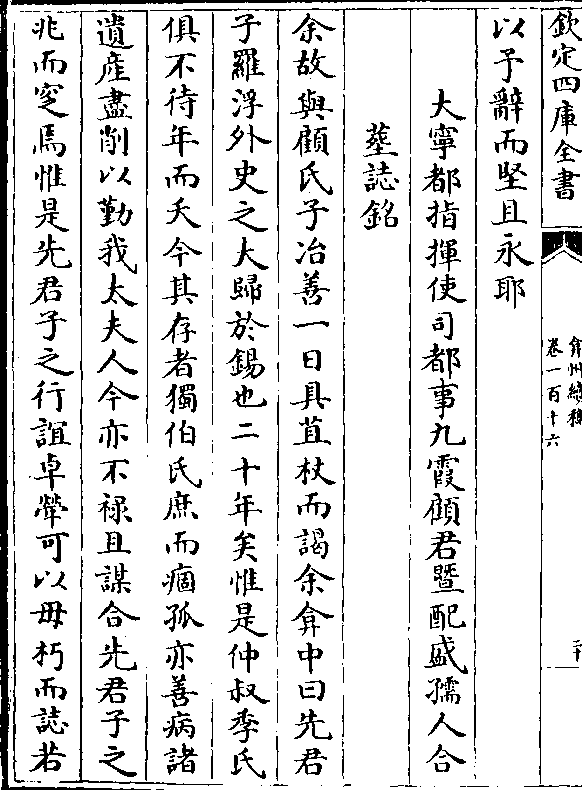 欽定四庫全書
弇州續稿
卷一百十六
二十
以予辭而堅且永耶
大寧都指揮使司都事九霞顧君暨配盛孺人合
塟誌銘
余故與顧氏子冶善一日具苴杖而謁余弇中曰先君
子羅浮外史之大歸於錫也二十年矣惟是仲叔季氏
俱不待年而夭今其存者獨伯氏庶而痼孤亦善病諸
遺產盡削以勤我太夫人今亦不祿且謀合先君子之
兆而窆焉惟是先君子之行誼卓犖可以毋朽而誌若